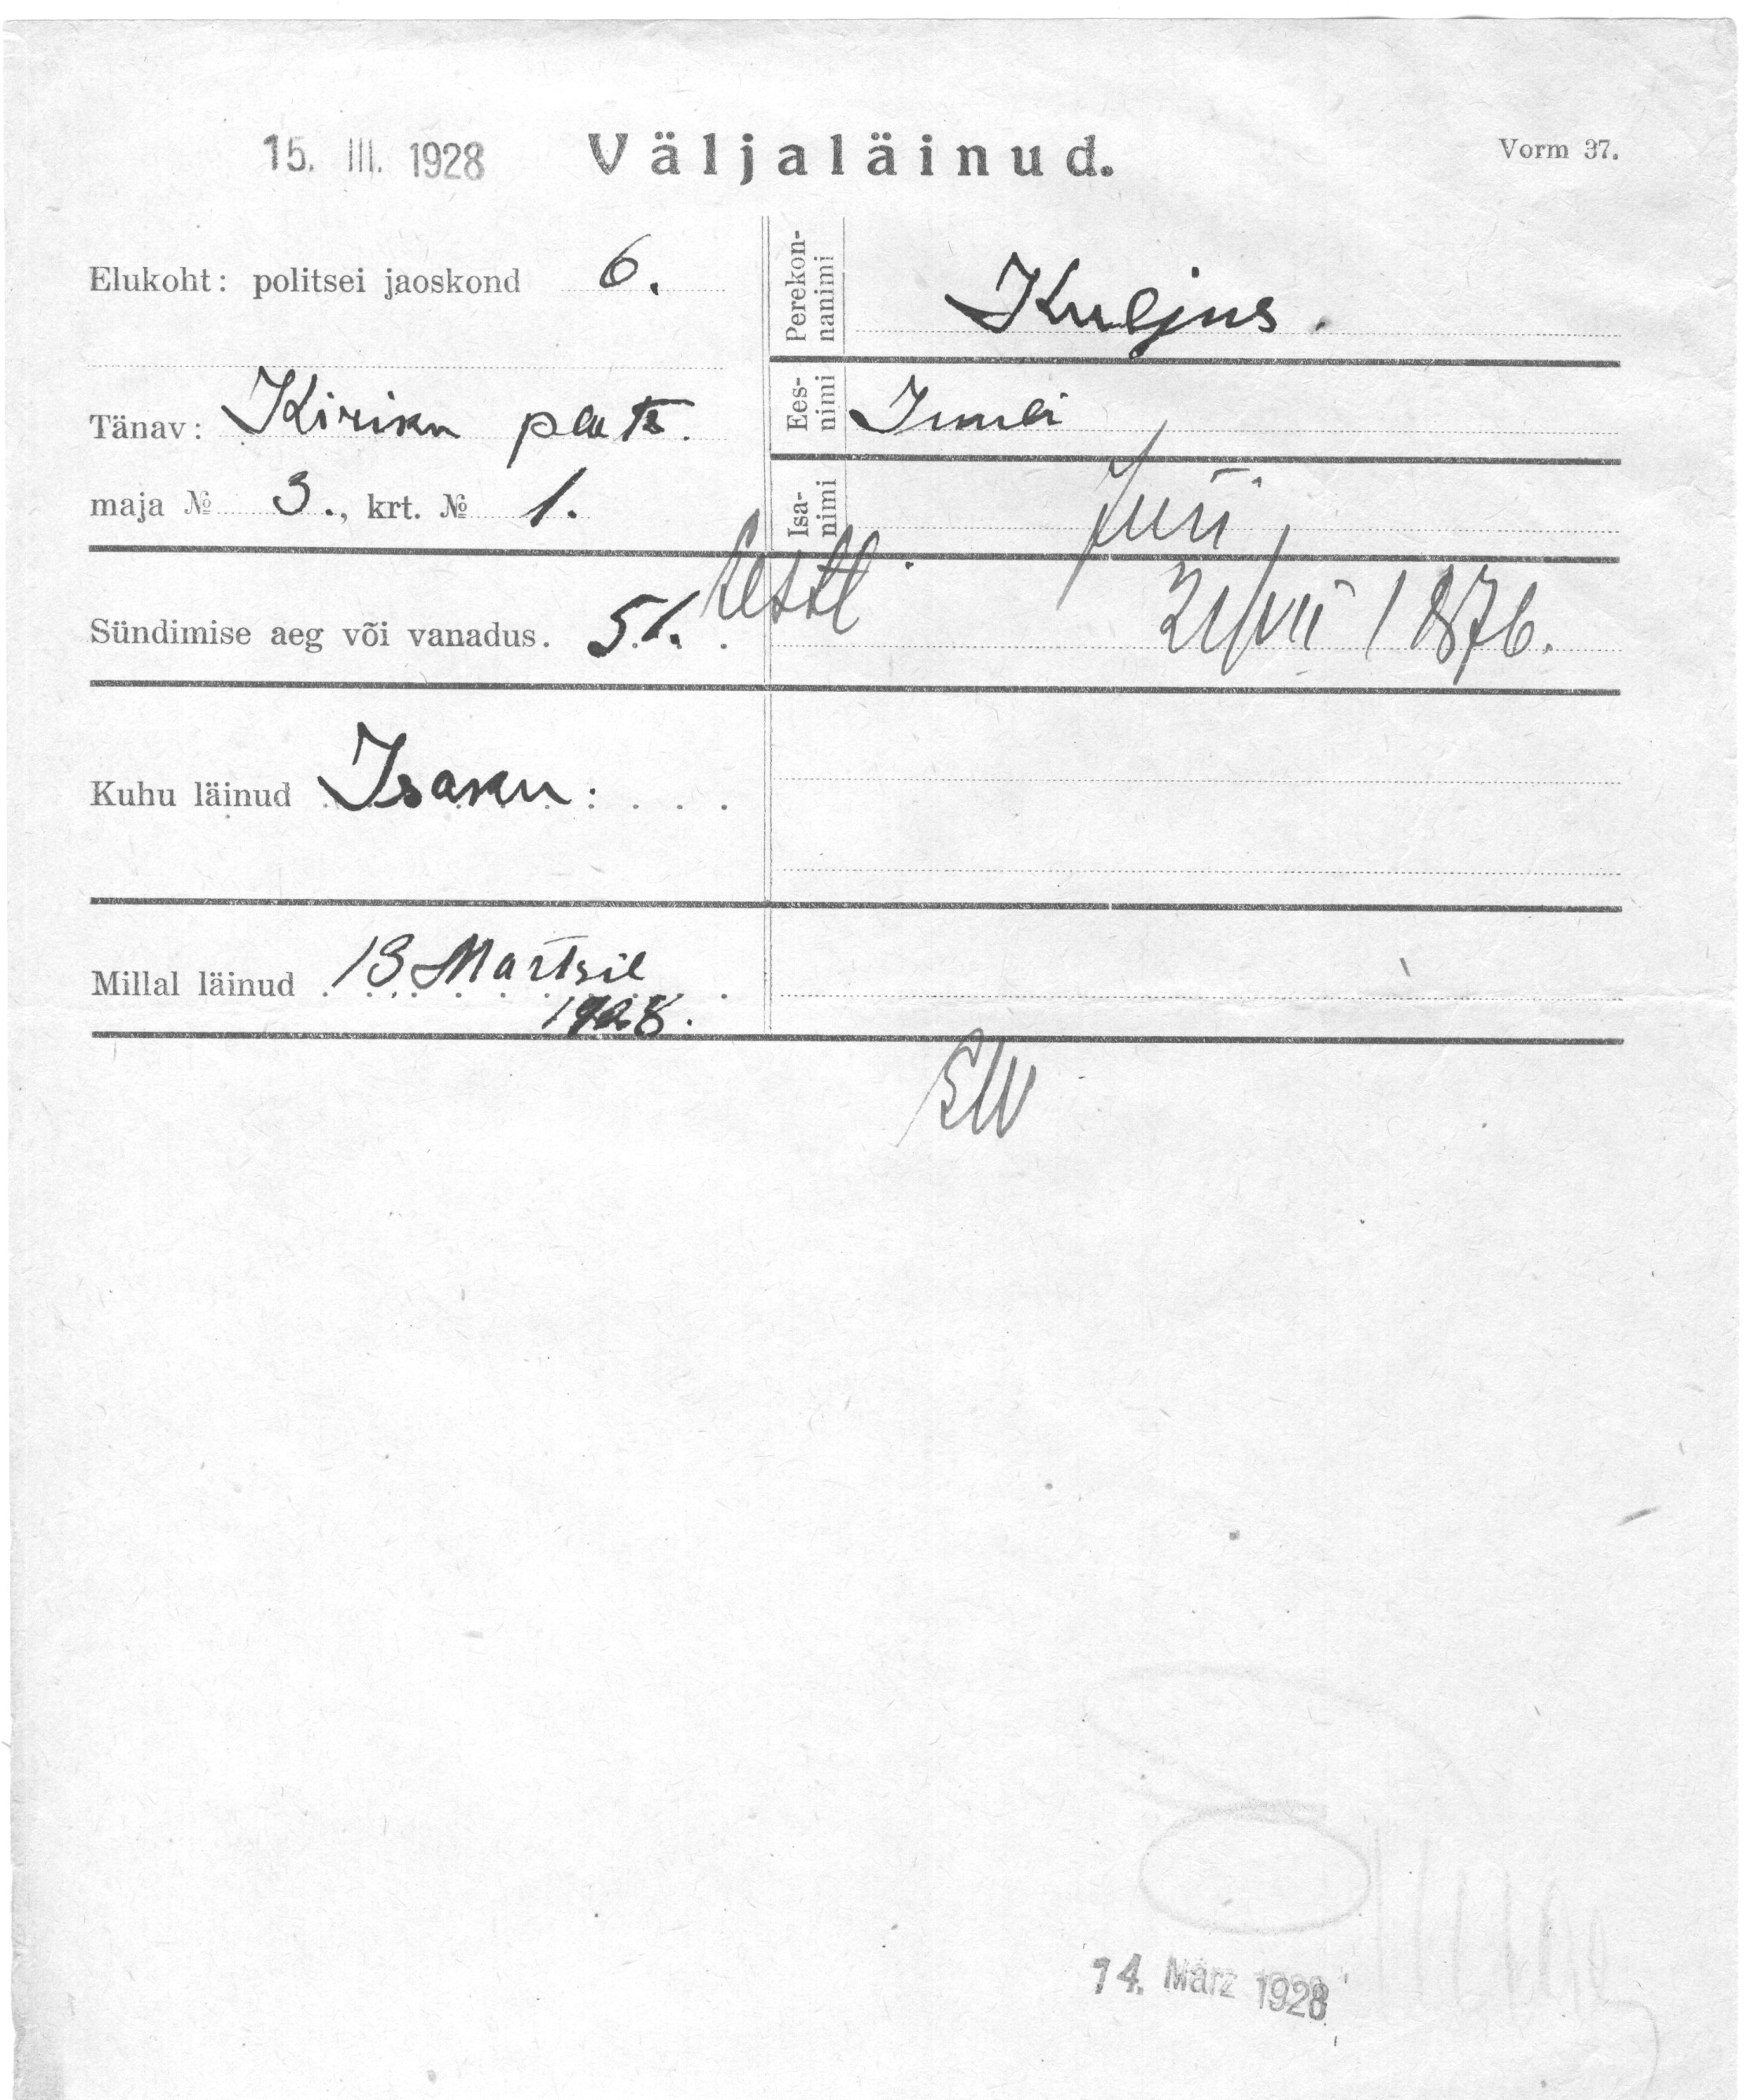 15. III. 1928 Väljaläinud. Vorm 37.
Elukoht: politsei jaoskond 6.
Perekonnanimi Kuljus.
Tänav: Kiriku plats.
Eesnimi Juuli
maja № 3., krt. № 1.
Isanimi Jüri
Sündimise aeg või vanadus. 51. Eestl. 21/VII 1876.
Kuhu läinud Isaku:
Millal läinud 13 Martsil
1928.
EW
14. März 1928